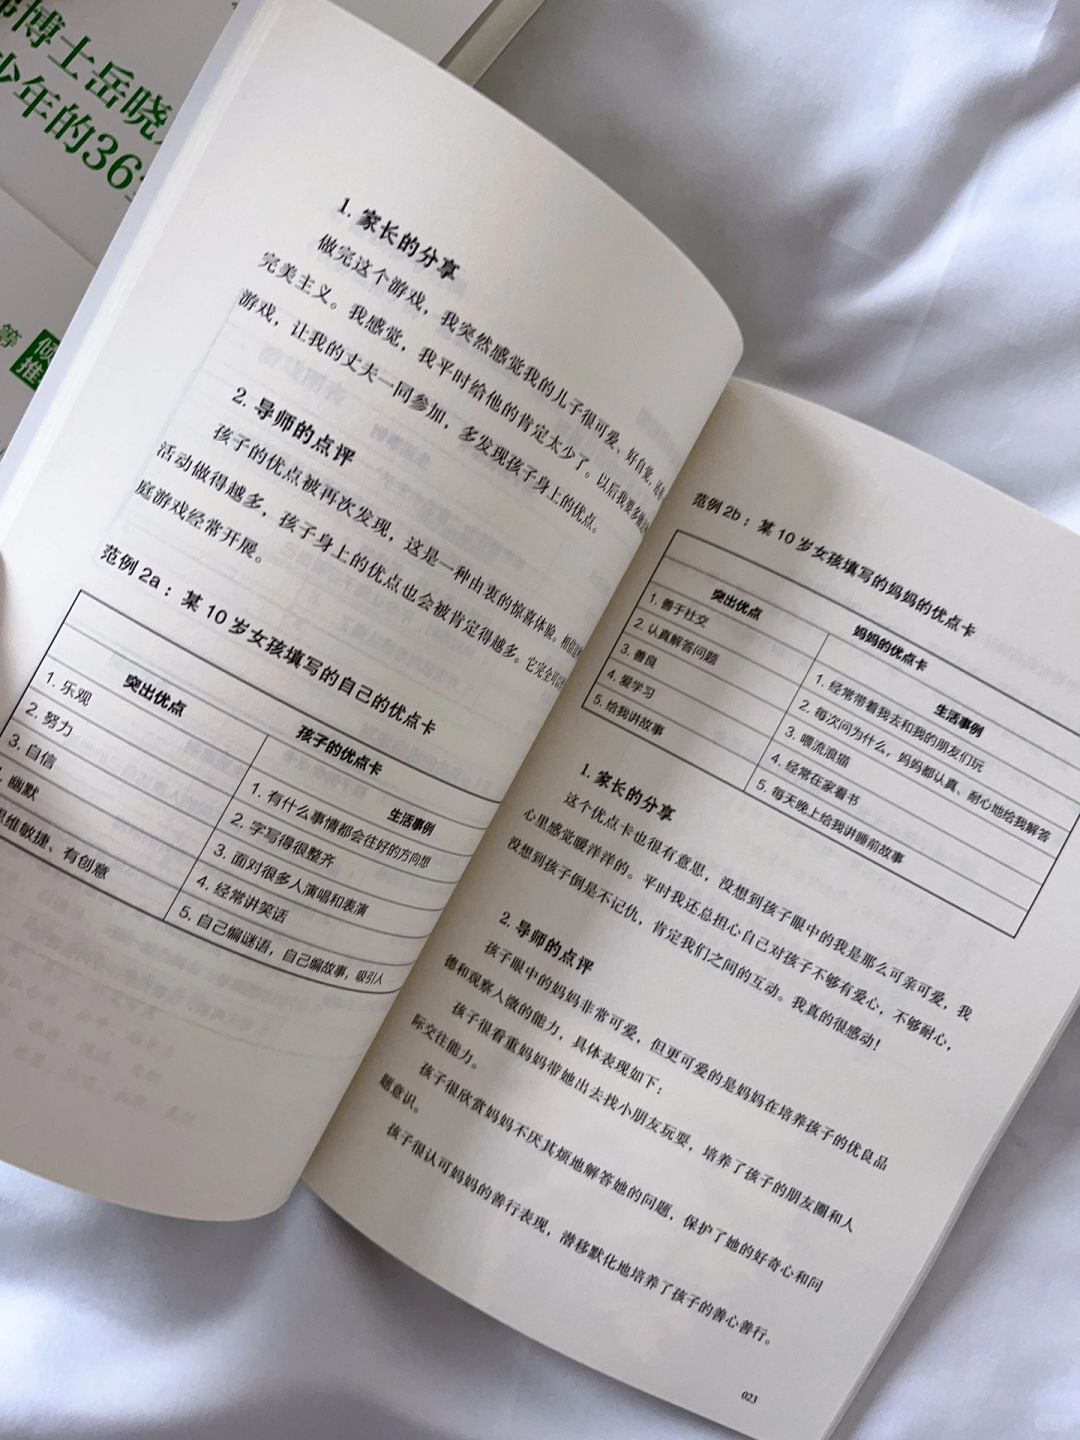 博士岳晓
少年的36
等
倾
推
1. 家长的分享
做完这个游戏，我突然感觉我的儿子很可爱、好自觉，还有
完美主义。我感觉，我平时给他的肯定太少了。以后我要多做这
游戏，让我的丈夫一同参加，多发现孩子身上的优点。
2. 导师的点评
孩子的优点被再次发现，这是一种由衷的惊喜体验。相信这
活动做得越多，孩子身上的优点也会被肯定得越多。它完全可以
庭游戏经常开展。
范例 2a：某 10 岁女孩填写的自己的优点卡
孩子的优点卡
突出优点 生活事例
1. 乐观 1. 有什么事情都会往好的方向想
2. 努力 2. 字写得很整齐
3. 自信 3. 面对很多人演唱和表演
幽默 4. 经常讲笑话
思维敏捷、有创意 5. 自己编谜语，自己编故事，吸引人
范例 2b：某 10 岁女孩填写的妈妈的优点卡
妈妈的优点卡
突出优点 生活事例
1. 善于社交 1. 经常带着我去和我的朋友们玩
2. 认真解答问题 2. 每次问为什么，妈妈都认真、耐心地给我解答
3. 善良 3. 喂流浪猫
4. 爱学习 4. 经常在家看书
5. 给我讲故事 5. 每天晚上给我讲睡前故事
1. 家长的分享
这个优点卡也很有意思，没想到孩子眼中的我是那么可亲可爱，我
心里感觉暖洋洋的。平时我还总担心自己对孩子不够有爱心，不够耐心，
没想到孩子倒是不记仇，肯定我们之间的互动。我真的很感动！
2. 导师的点评
孩子眼中的妈妈非常可爱，但更可爱的是妈妈在培养孩子的优良品
德和观察入微的能力，具体表现如下：
孩子很看重妈妈带她出去找小朋友玩耍，培养了孩子的朋友圈和人
际交往能力。
孩子很欣赏妈妈不厌其烦地解答她的问题，保护了她的好奇心和问
题意识。
孩子很认可妈妈的善行表现，潜移默化地培养了孩子的善心善行。
023